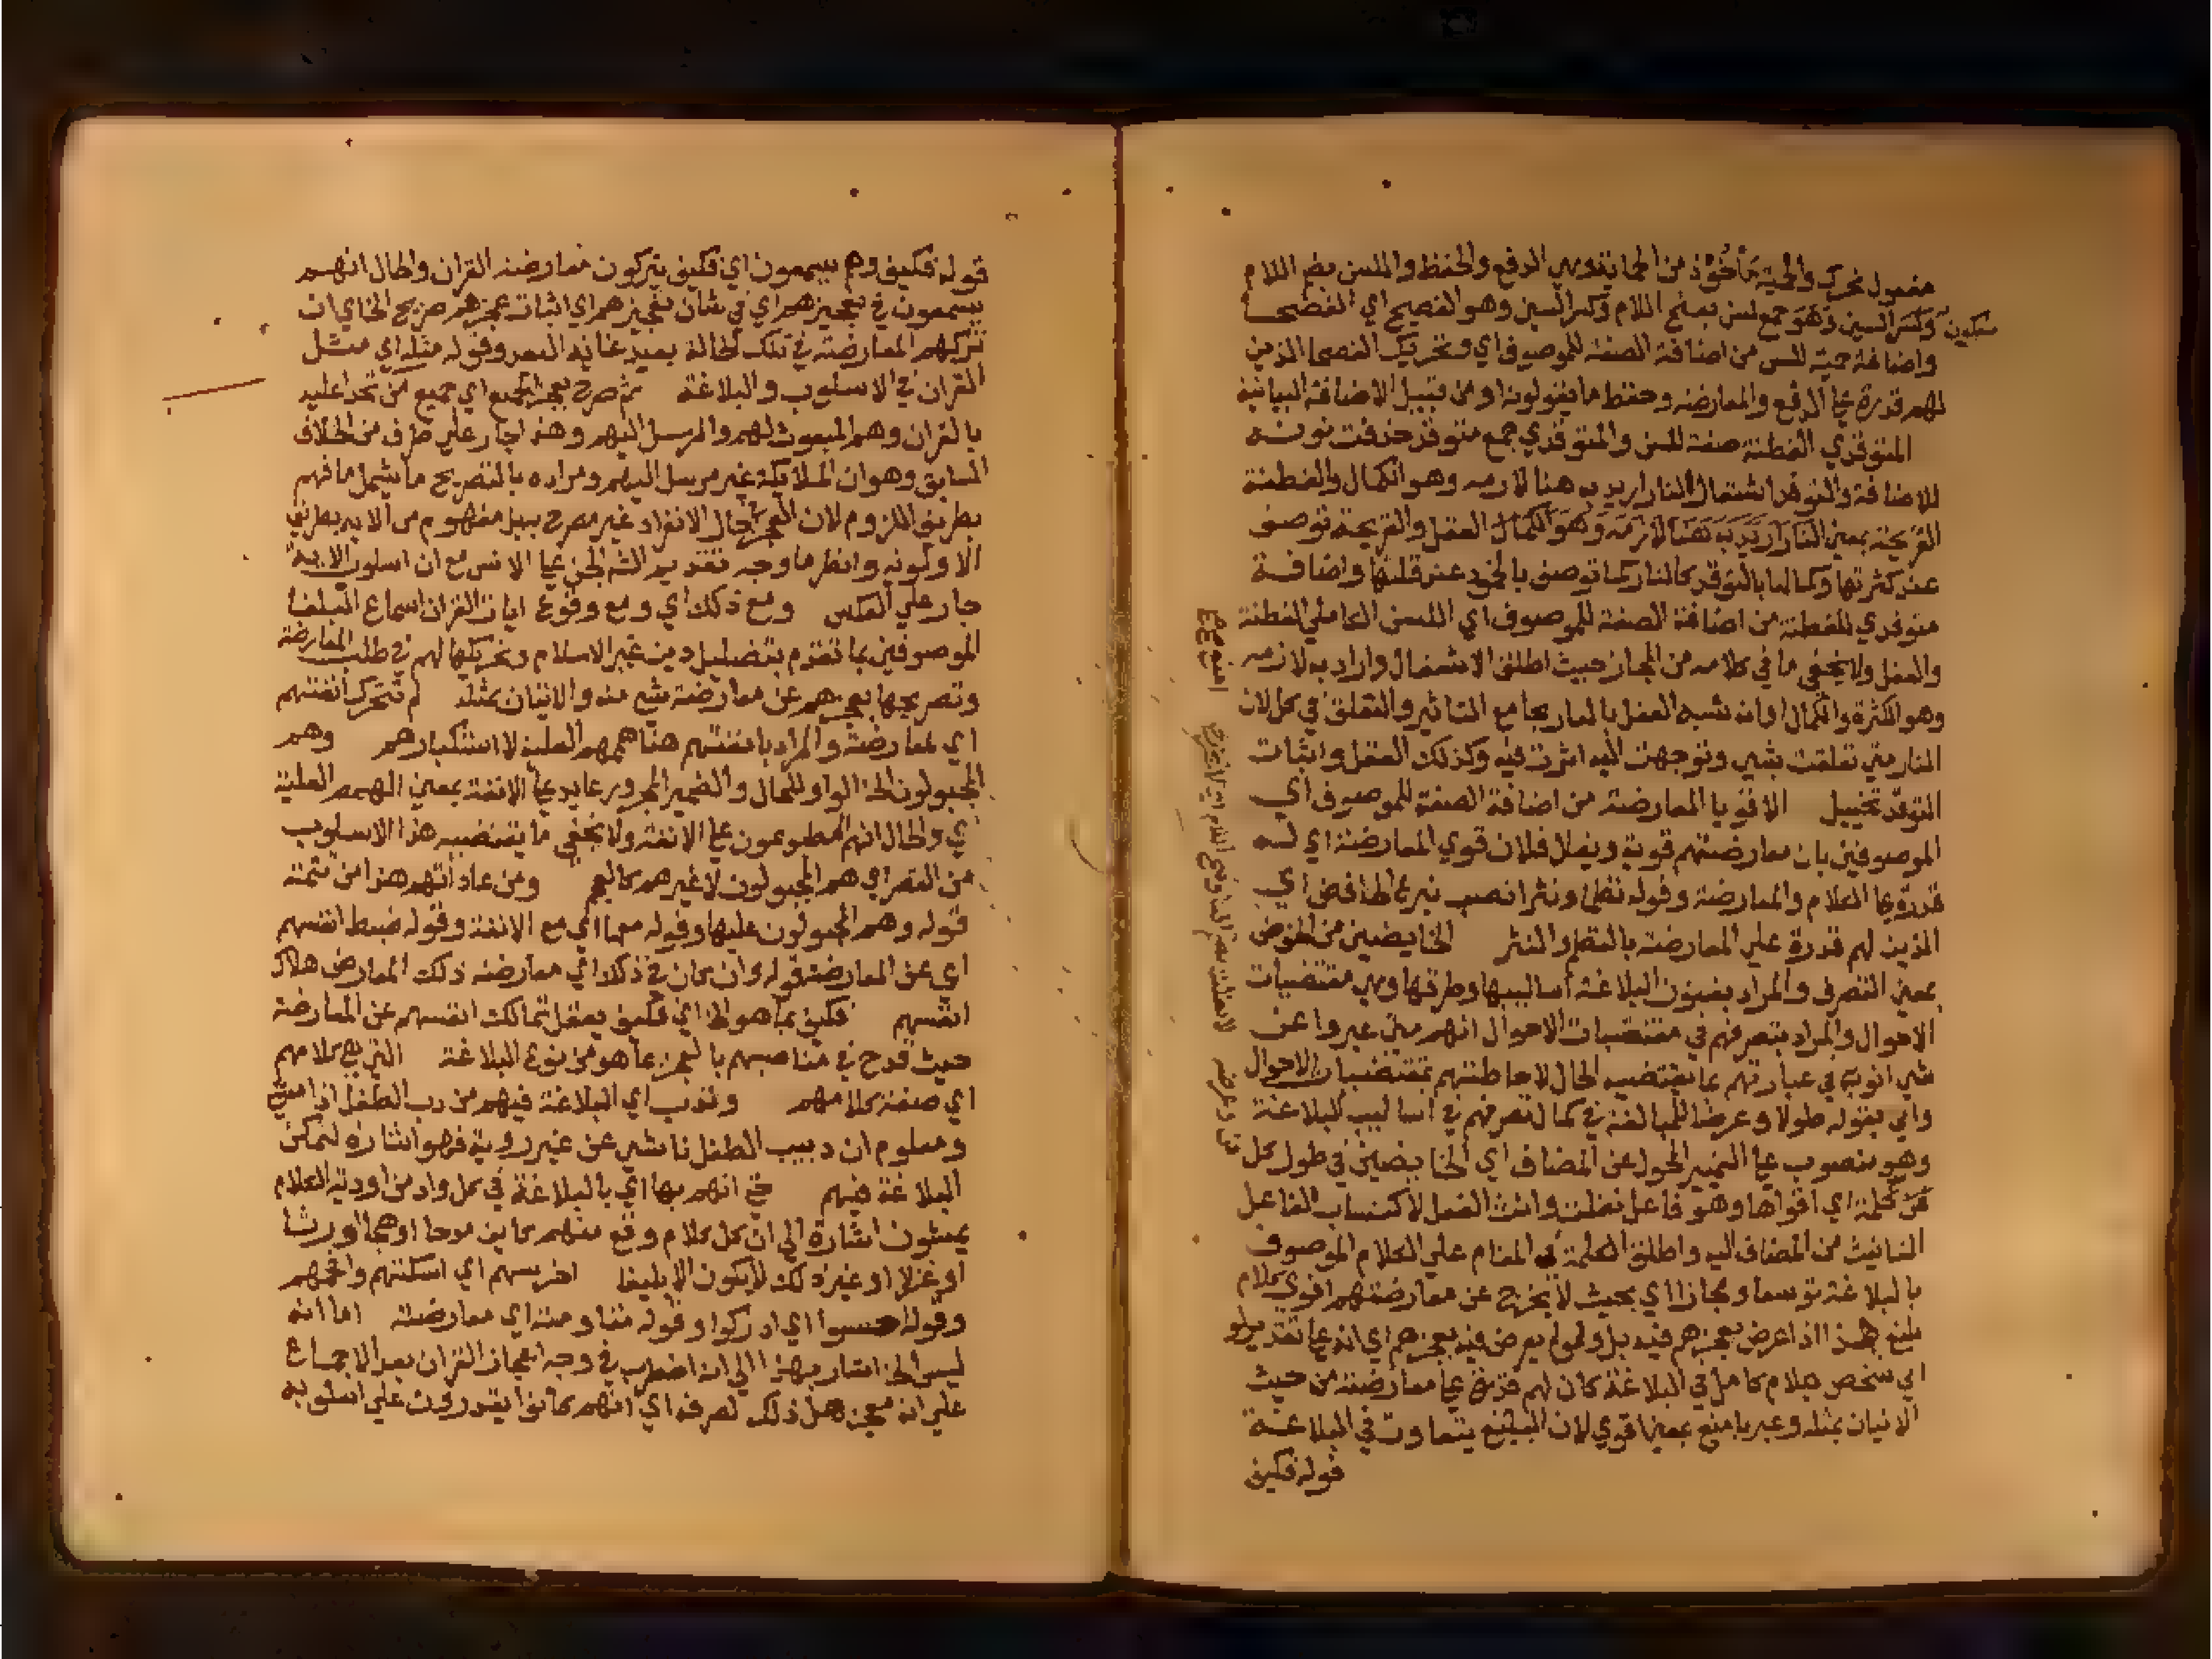 مفعول تحرك والحمية مأخوذ من الحماية وهي الدفع والحفظ واللسن بضم اللام
وكسر السين وهو جمع لسن بفتح اللام وكسر السين وهو الفصيح اي الفصحا
سكون
واضافة حمية للسن من اضافة الصفة للموصوف اي وتحريك الفصحا الذين
لهم قدرة علي الدفع والمعارضة وحفظ ما يقولونه او من قبيل الاضافة البيانية
المتوقدي الفطنة صفة للسن والمتوقدي جمع متوقد حذفت نونه
للاضافة والتوقد اشتعال النار اريد به هنا لازمه وهو الكمال والفطنة
القريحة بمعني النار اريد به هنا لازمه وهو الكمال العقل والقريحة توصف
عند كثرتها وكمالها بالتوقد كالنار كما توصف بالخمود عند قلتها واضافة
متوقدي للفطنة من اضافة الصفة للموصوف اي اللسن الكاملي الفطنة
والعقل ولا يخفي ما في كلامه من المجاز حيث اطلق الاشتعال واراد به لازمه
وهو الكثرة والكمال او انه شبه العقل بالنار بجامع التاثير والتعلق في كل لان
النار متي تعلقت بشي وتوجهت اليه اثرت فيه وكذلك العقل واثبات
التوقد تخييل الاقويا المعارضة من اضافة الصفة للموصوف اي
الموصوفين بان معارضتهم قوية ويقال فلان قوي المعارضة اي له
قدرة علي الكلام والمعارضة وقوله نظما ونثرا نصب بنزع الخافض اي
الذين لهم قدرة علي المعارضة بالنظم والنثر الخايضين من الخوض
بمعني التصرف والمراد بفنون البلاغة اساليبها وطرقها وهي مقتضيات
الاحوال والمراد بتصرفهم في مقتضيات الاحوال انهم متي عبروا عن
شي اتوا في عبارتهم بما يقتضيه الحال لاحاطتهم بمقتضيات الاحوال
واتي بقوله طولا وعرضا للمبالغة في كمال تصرفهم في اساليب البلاغة
وهو منصوب علي التمييز المحول عن المضاف اي الخايضين في طول كل
فن وعرضه
من كلمة اي اقواها وهو فاعل تفلت وانث الفعل لاكتساب الفاعل
التانيث من المضاف اليه واطلق الكلمة في المقام علي الكلام الموصوف
بالبلاغة توسعا ومجازا اي بحيث لا يخرج عن معارضتهم اقوي كلام
بليغ هذا اذا عرض بعجزهم فيه بل ولو لم يعرض فيه بعجزهم اي انه علي تقدير لو
اي شخص بكلام كامل في البلاغة كان لهم قدرة علي معارضته من حيث
الاتيان بمثله وعبر بامنع بمعني اقوي لان البليغ يتفاوت في البلاغة
قوله فكيف
قوله فكيف وهم يسمعون اي فكيف يتركون معارضة القران والحال انهم
يسمعون في تعجيزهم اي في شان تعجيزهم اي اثبات عجزهم صريح الخ اي ان
تركهم المعارضة في تلك الحالة بعيد غاية البعد وقوله مثله اي مثل
القران في الاسلوب والبلاغة ثم صرح بعجز الجميع اي جميع من تحدا عليه
بالقران وهم المبعوث لهم والمرسل اليهم وهذا جار علي طرف من الخلاف
السابق وهو ان الملايكة غير مرسل اليهم ومراده بالتصريح ما يشمل ما فهم
بطريق اللزوم لان العجز حال الانفراد غير مصرح به بل مفهوم من الاية بطريق
الاولوية وانظر ما وجه تقديم الشر الجن علي الانس مع ان اسلوب الاية
جار علي العكس ومع ذلك اي ومع وقوع ايات القران اسماع البلغا
الموصوفين بما تقدم بتضليل دين غير الاسلام وتحريكها لهم في طلب المعارضة
وتصريحها بعجزهم عن معارضة شي منه والاتيان بمثله لم تتحرك انفتهم
اي لمعارضته والمراد بانفتهم هنا هممهم العلية لا استكبارهم وهم
المجبولون الخ الواو للحال والضمير المجرور عايد علي الانفة بمعني الهمم العلية
اي والحال انهم المطبوعون علي الانفة ولا يخفي ما يقتضيه هذا الاسلوب
من القصر اي هم المجبولون لا غيرهم كالعجم ومن عاداتهم هذا من تتمة
قوله وهم المجبولون عليها وقوله معها اي مع الانفة وقوله ضبط انفسهم
اي عن المعارضة قوله وان كان في ذلك اي معارضة ذلك المعارض هلاك
انفسهم فكيف بما هو الخ اي فكيف يعقل تمالك انفسهم عن المعارضة
حيث قدح في مناصبهم بالعجز عما هو من نوع البلاغة التي هي كلامهم
اي صفة كلامهم وتدب اي البلاغة فيهم من دب الطفل اذا مشي
ومعلوم ان دبيب الطفل ناشي عن غير روية فهو اشارة لتمكن
البلاغة فيهم في انهم بها اي بالبلاغة في كل واد من اودية الكلام
يمشون اشارة الي ان كل كلام وقع منهم كاين مدحا او هجا او رثا
او غزلا او غير ذلك لا يكون الا بليغا اخرسهم اي اسكتهم وافحمهم
وقوله احسوا اي ادركوا وقوله مقاومته اي معارضته اما انه
ليس الخ اشار بهذا الي انه اضطرب في وجه اعجاز القران بعد الاجماع
علي انه معجز هل ذلك لصرفه اي انهم كانوا يقدرون علي اسلوبه